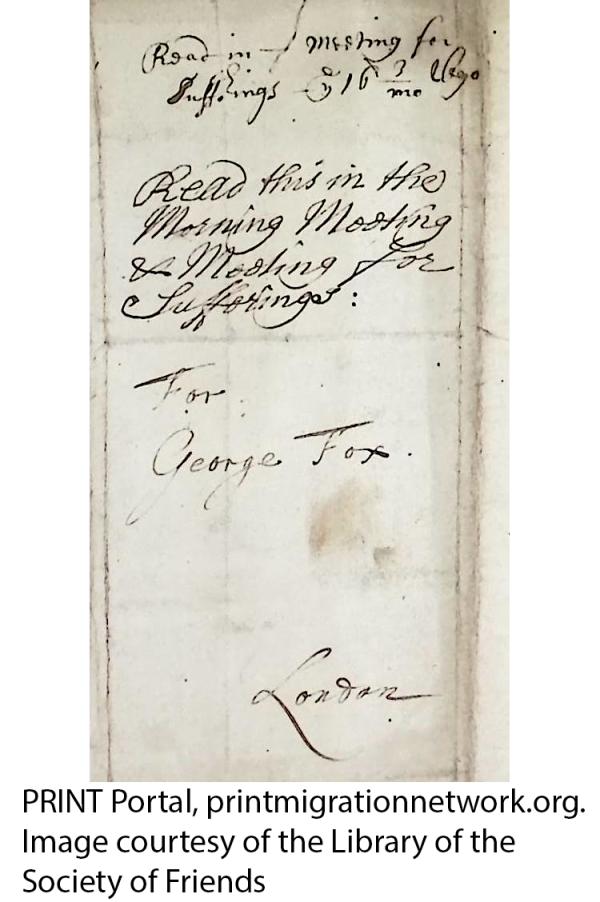 Read in ye meeting for
Sufferings ye 16 3/mo 1690
Read this in the
Morning Meeting
& Meeting for
Sufferings:
For
George Fox.
London
PRINT Portal, printmigrationnetwork.org.
Image courtesy of the Library of the
Society of Friends